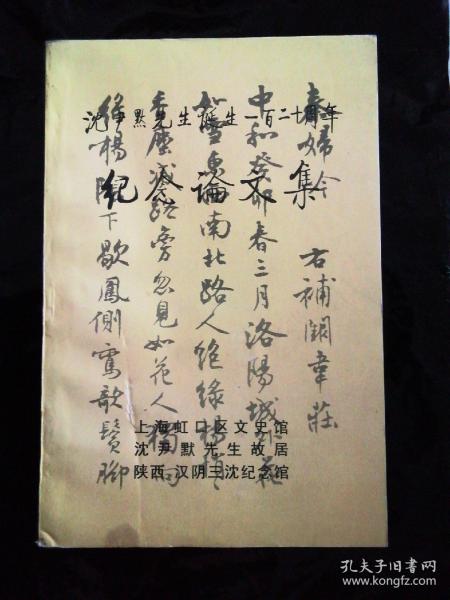 沈尹默先生诞生一百二十周年
纪念论文集
秦婦吟 右補闕韋莊
中和癸卯春三月洛陽城外花
如雪東西南北路人絕綠楊悄
悄香塵滅路旁忽見如花人獨向
綠楊陰下歇鳳側鸞欹鬢腳
上海虹口区文史馆
沈尹默先生故居
陕西汉阴三沈纪念馆
孔夫子旧书网
www.kongfz.com